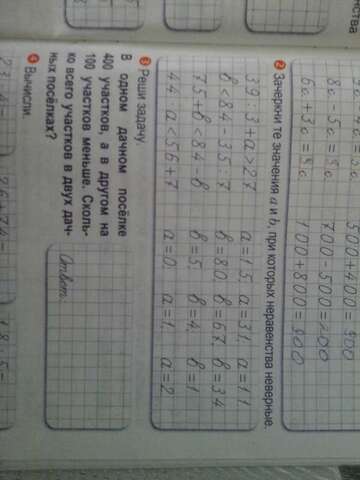 500+400=900
8а-5а=3а 700-500=200
6а+3а=9а 100+800=900
2 Зачеркни те значения a и b, при которых неравенства неверные.
39:3+a>27 a=15, a=31, a=11
b<84-35:7 b=80, b=67, b=34
75+b<84-b b=5, b=4, b=1
44·a<56+7 a=0, a=1, a=2
3 Реши задачу.
В одном дачном посёлке
400 участков, а в другом на
100 участков меньше. Сколь-
ко всего участков в двух дач-
ных посёлках?
Ответ:
4 Вычисли.